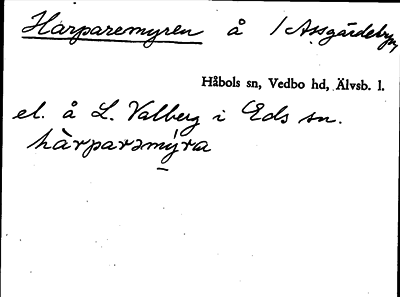 Harparemyren å / Assgärdebyn
Håbols sn, Vedbo hd, Älvsb. l.
el. å L. Valberg i Eds sn.
hàrparəmýra